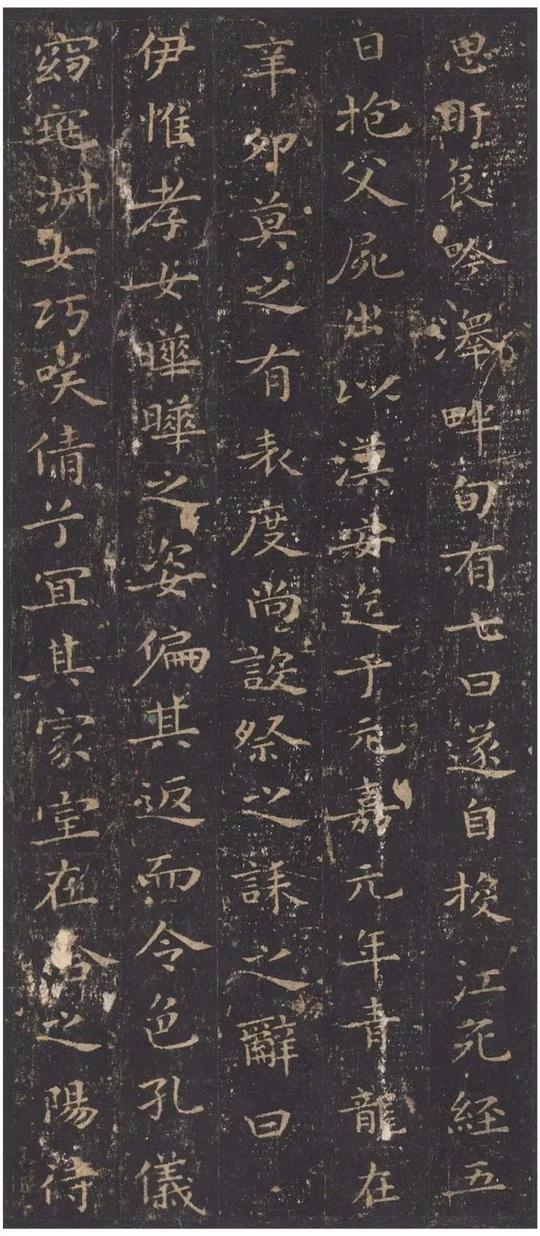 思盱哀吟澤畔旬有七日遂自投江死經五
日抱父屍出以漢安迄于元嘉元年青龍在
辛卯莫之有表度尚設祭之誄之辭曰
伊惟孝女曄曄之姿偏其返而令色孔儀
窈窕淑女巧咲倩兮宜其家室在洽之陽待